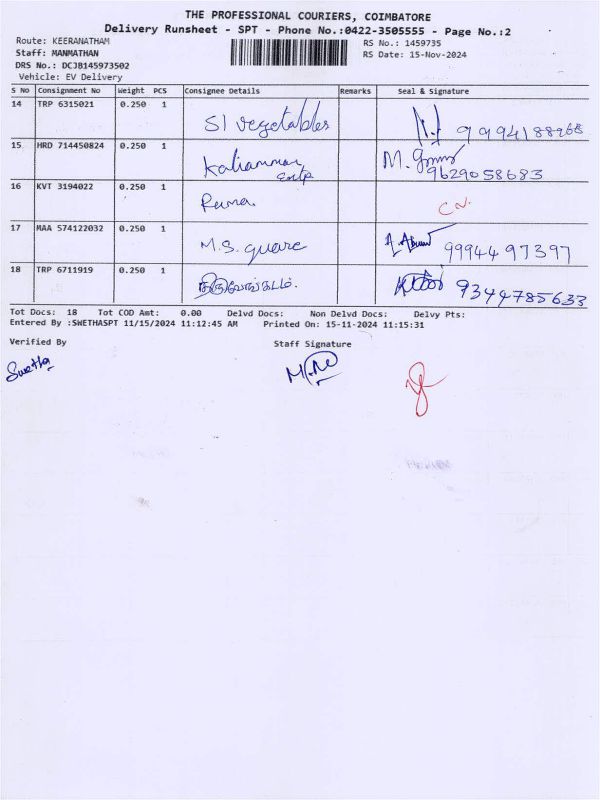 THE PROFESSIONAL COURIERS, COIMBATORE
Delivery Runsheet - SPT - Phone No.:0422-3505555 - Page No.:2
Route: KEERANATHAM
RS No.: 1459735
Staff: MANMATHAN
RS Date: 15-Nov-2024
DRS No.: DCJB145973502
Vehicle: EV Delivery
S No Consignment No Weight PCS Consignee Details Remarks Seal & Signature
14 TRP 6315021 0.250 1 SI vegetables 9994188968
15 HRD 714450824 0.250 1 Kaliamman entp M. 9629058683
16 KVT 3194022 0.250 1 Rama.
17 MAA 574122032 0.250 1 M.S. quare 9994497397
18 TRP 6711919 0.250 1 திருவேங்கடம். 9344785633
Tot Docs: 18 Tot COD Amt: 0.00 Delvd Docs: Non Delvd Docs: Delvy Pts:
Entered By :SWETHASPT 11/15/2024 11:12:45 AM Printed On: 15-11-2024 11:15:31
Verified By Staff Signature
Swetha